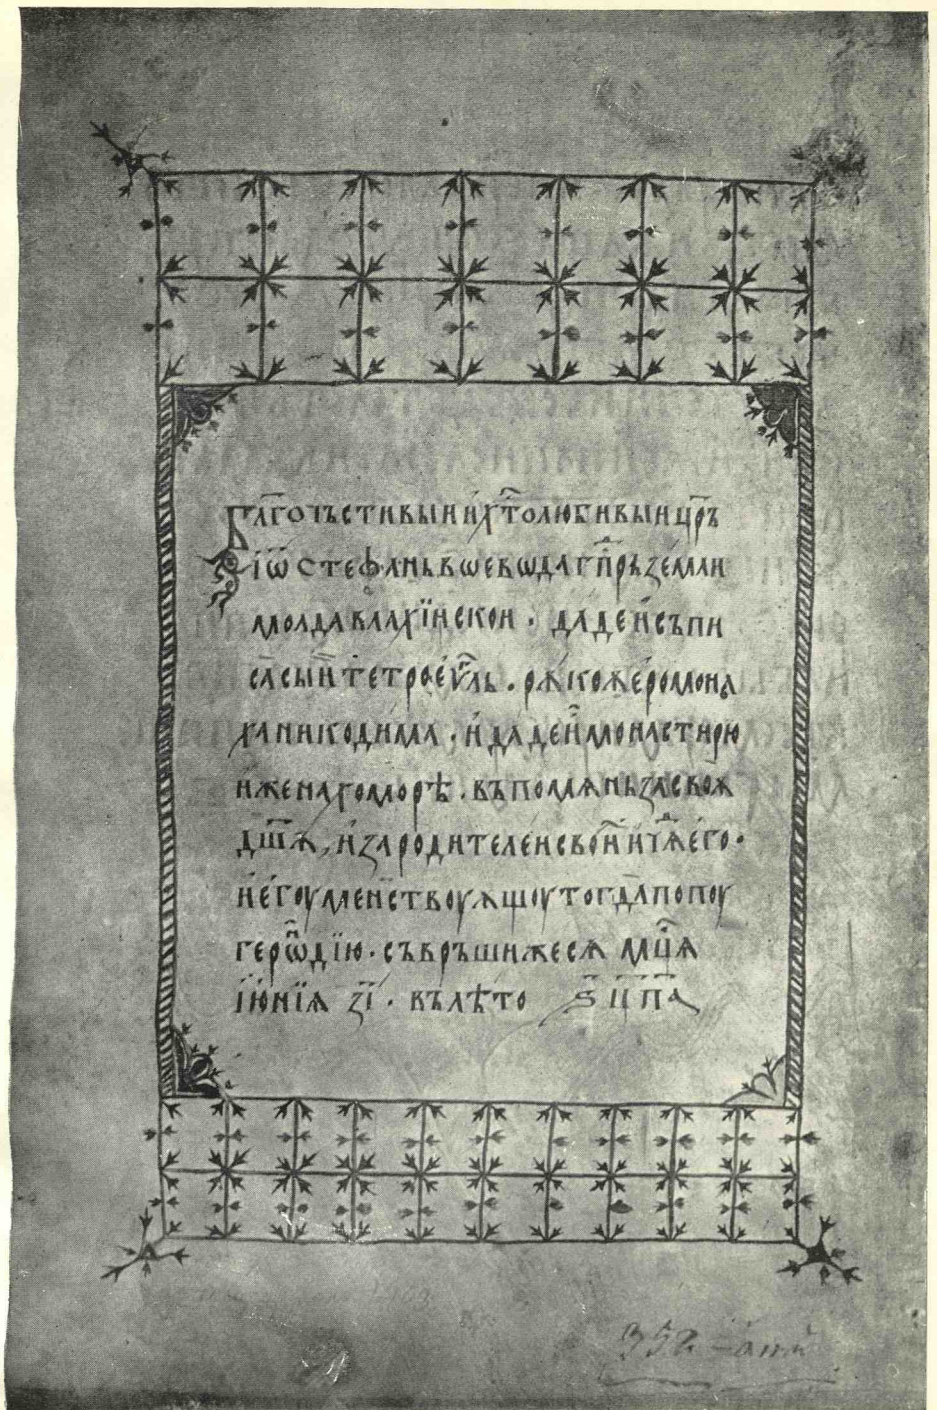 Бл҃гочъстивыи и҆ хⷭ҇толюбивыи цр҃ъ
і҆ѡ҃ стефань вѡевѡда гпⷭ҇рь земли
молдавлахїискои · даде и҆съпи
са сьіи тетроеѵ҃ль · рѫкоѫ еромона
ха никодима · и҆ даде и҆ монастирю
иже на хоморѣ · въ помѧнь за своѫ
дш҃ѫ, и҆ за родителеи свои҆ и чѧⷣ его ·
и҆ е҆гоуменствоуѫщоу тогда попоу
герѡⷩ҇дїю · съвръши же сѧ мцⷭ҇ѧ
і҆ю҆нїѧ з҃і · въ лѣто ѕ҃ ц҃ п҃а